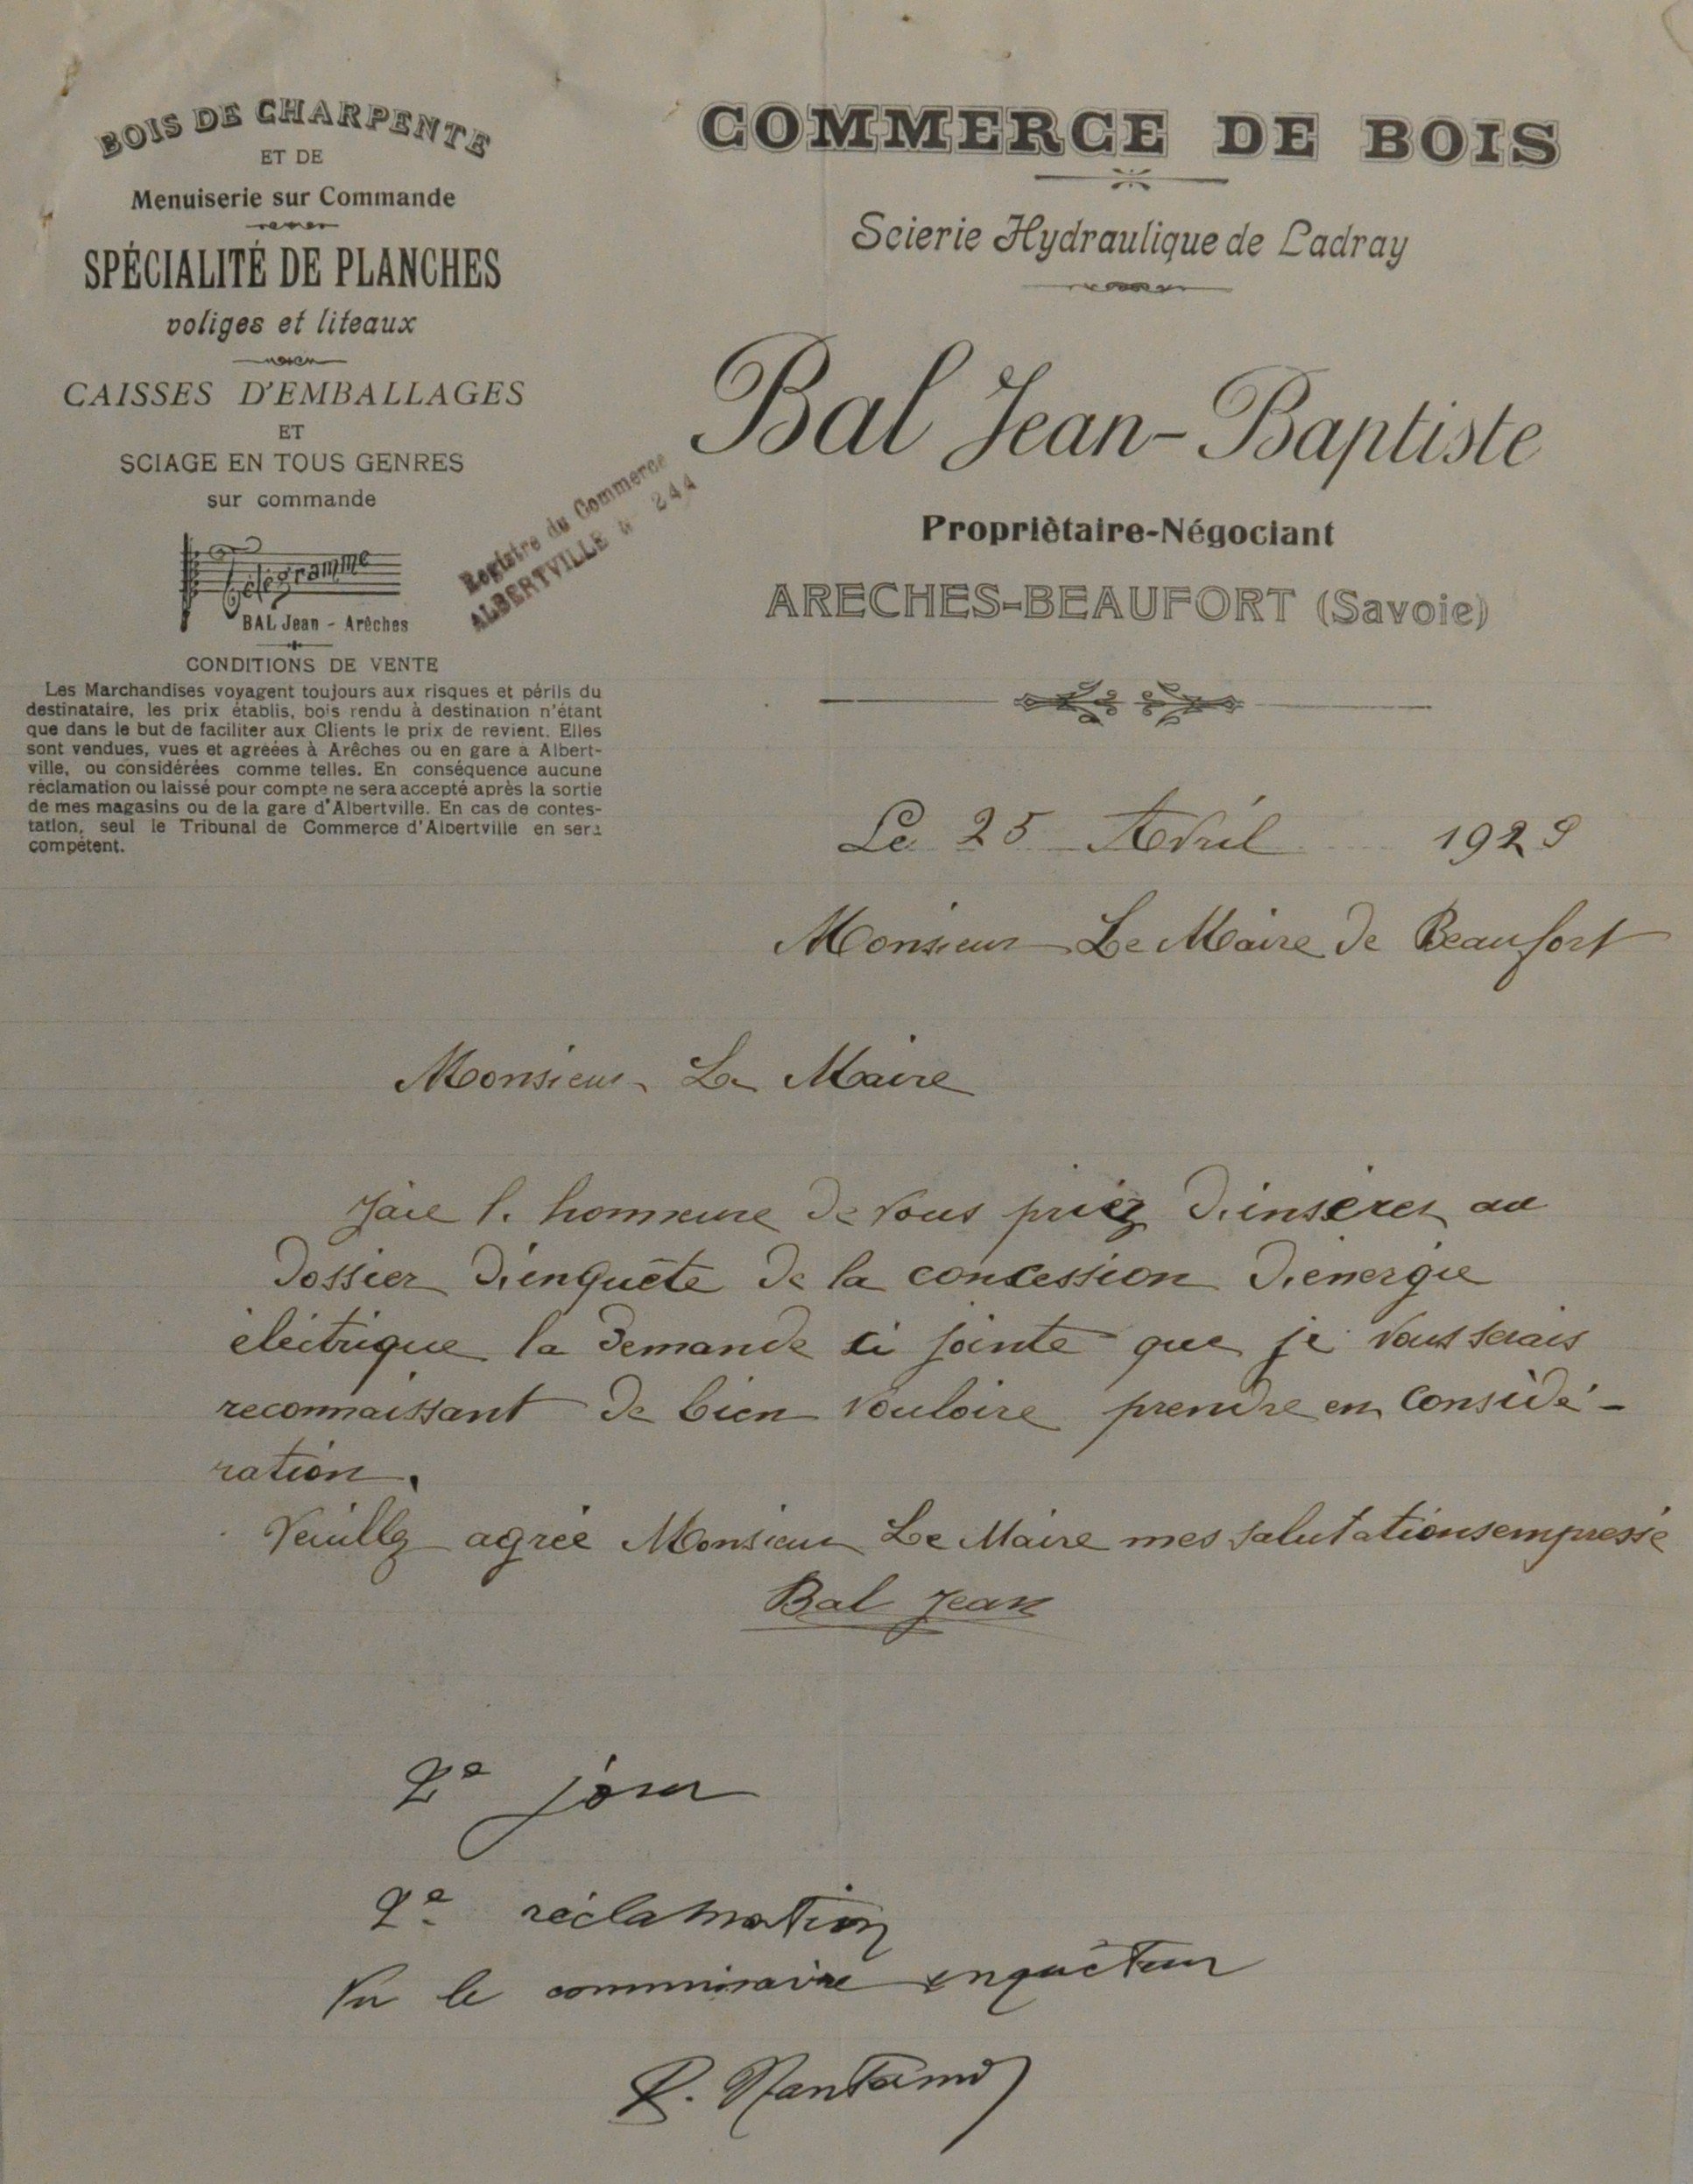 BOIS DE CHARPENTE
ET DE
Menuiserie sur Commande
SPÉCIALITÉ DE PLANCHES
voliges et liteaux
CAISSES D'EMBALLAGES
ET
SCIAGE EN TOUS GENRES
sur commande
Télégramme
BAL Jean - Arêches
CONDITIONS DE VENTE
Les Marchandises voyagent toujours aux risques et périls du
destinataire, les prix établis, bois rendu à destination n'étant
que dans le but de faciliter aux Clients le prix de revient. Elles
sont vendues, vues et agréées à Arêches ou en gare à Albert-
ville, ou considérées comme telles. En conséquence aucune
réclamation ou laissé pour compte ne sera accepté après la sortie
de mes magasins ou de la gare d'Albertville. En cas de contes-
tation, seul le Tribunal de Commerce d'Albertville en sera
compétent.
Registre du Commerce
ALBERTVILLE N° 244
COMMERCE DE BOIS
Scierie Hydraulique de Ladray
Bal Jean-Baptiste
Propriètaire-Négociant
ARECHES-BEAUFORT (Savoie)
Le 25 Avril 1929
Monsieur Le Maire de Beaufort
Monsieur Le Maire
Jaie l. honneure de vous priez d.insérer au
dossier d.enquête de la concession d.energie
éléctrique la demande ci jointe que je vous serais
reconnaissant de bien vouloire prendre en considé-
ration.
Veuillez agrée Monsieur Le Maire mes salutations empressé
Bal Jean
2e jour
2e réclamation
Vu le commissaire enquêteur